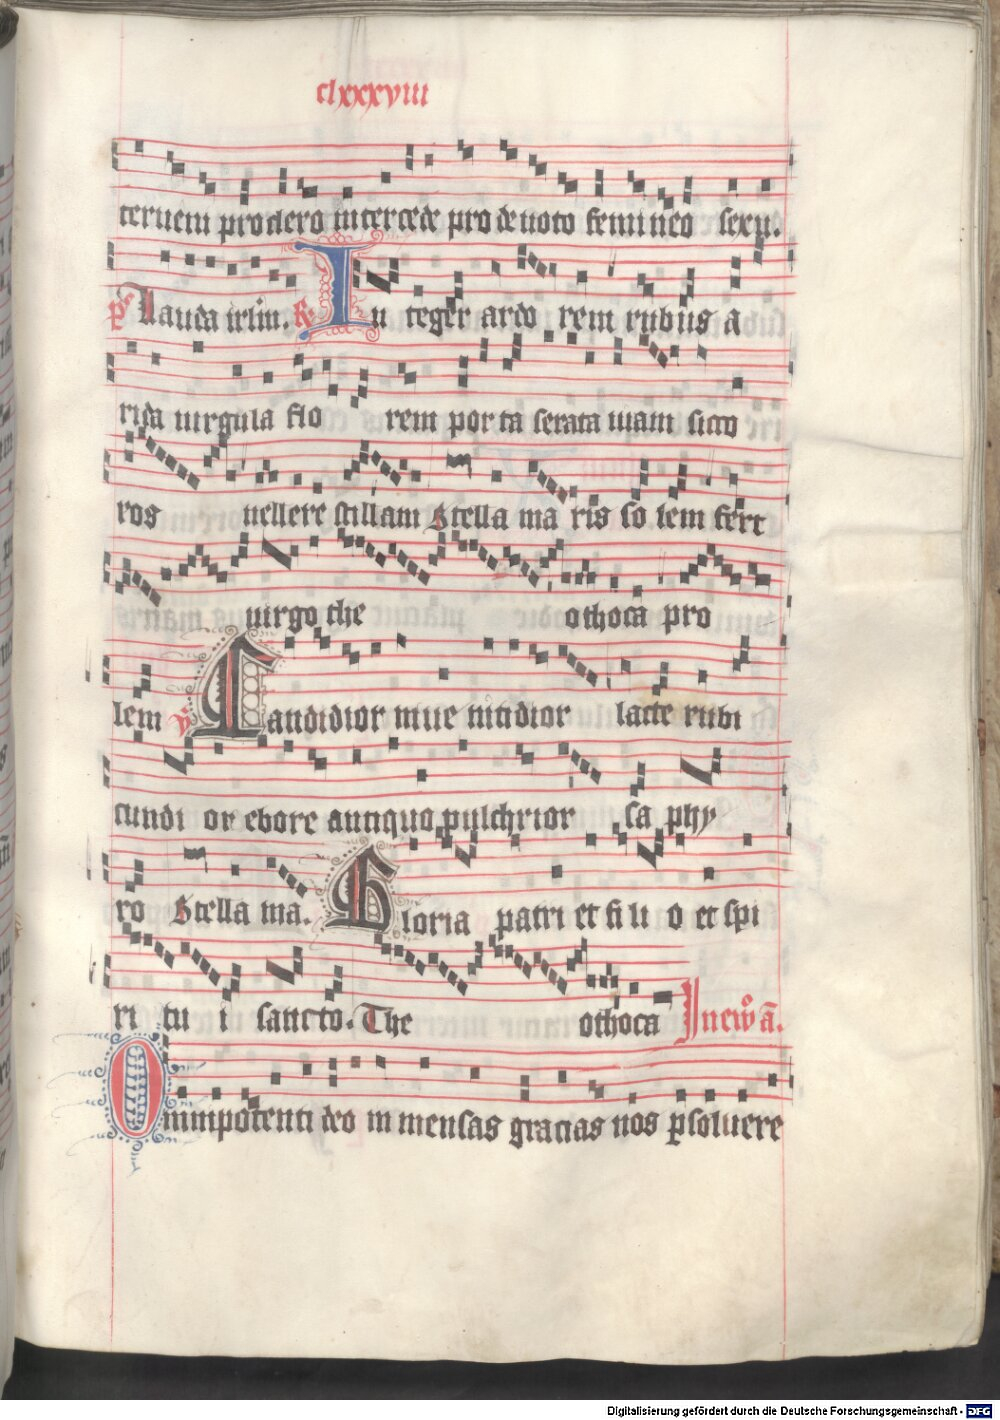 clxxxviii
ternem pro clero intercede pro deuoto femineo sexu.
ps Lauda irlm. R. In teger ardo rem rubus a
rida uirgula flo rem por ta serata uiam sicco
ros uellere stillam Stella ma ris so lem fert
uirgo the othoca pro
lem V Candidior niue nitidior lacte rubi
cundi or ebore antiquo pulchrior sa phy
ro Stella ma. Gloria patri et fi li o et spi
ri tu i sancto. The othoca In ewo a.
Omnipotenti deo in mensas gracias nos psoluere
Digitalisierung gefördert durch die Deutsche Forschungsgemeinschaft - DFG